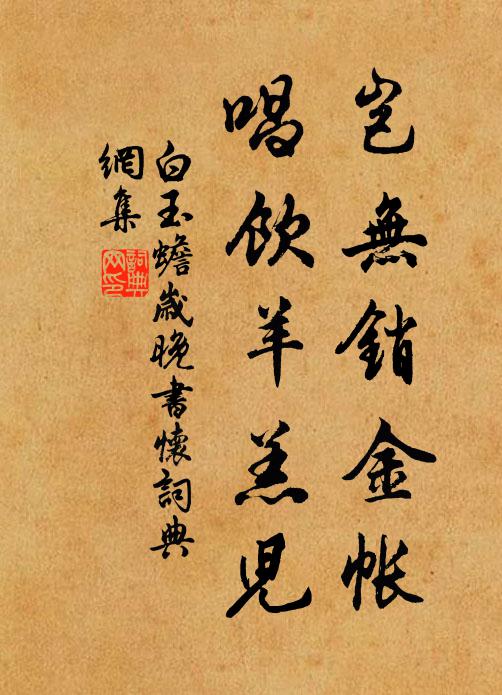 豈無銷金帳
唱飲羊羔兒
白玉蟾歲晚書懷詞典
網集
詞典
网印